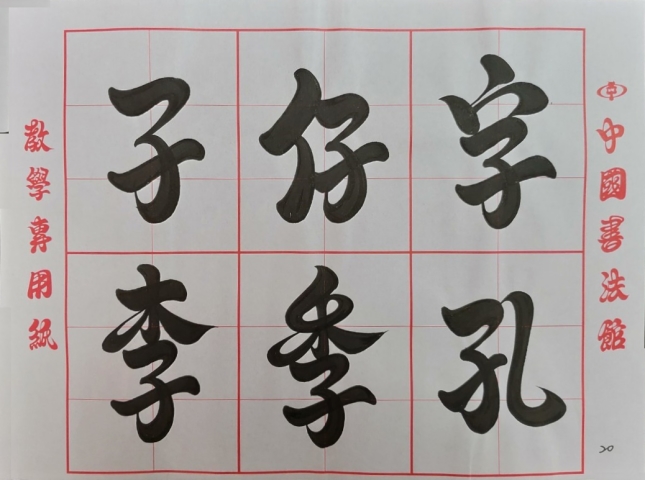 子仔字
李季孔
中國書法館
教學專用紙